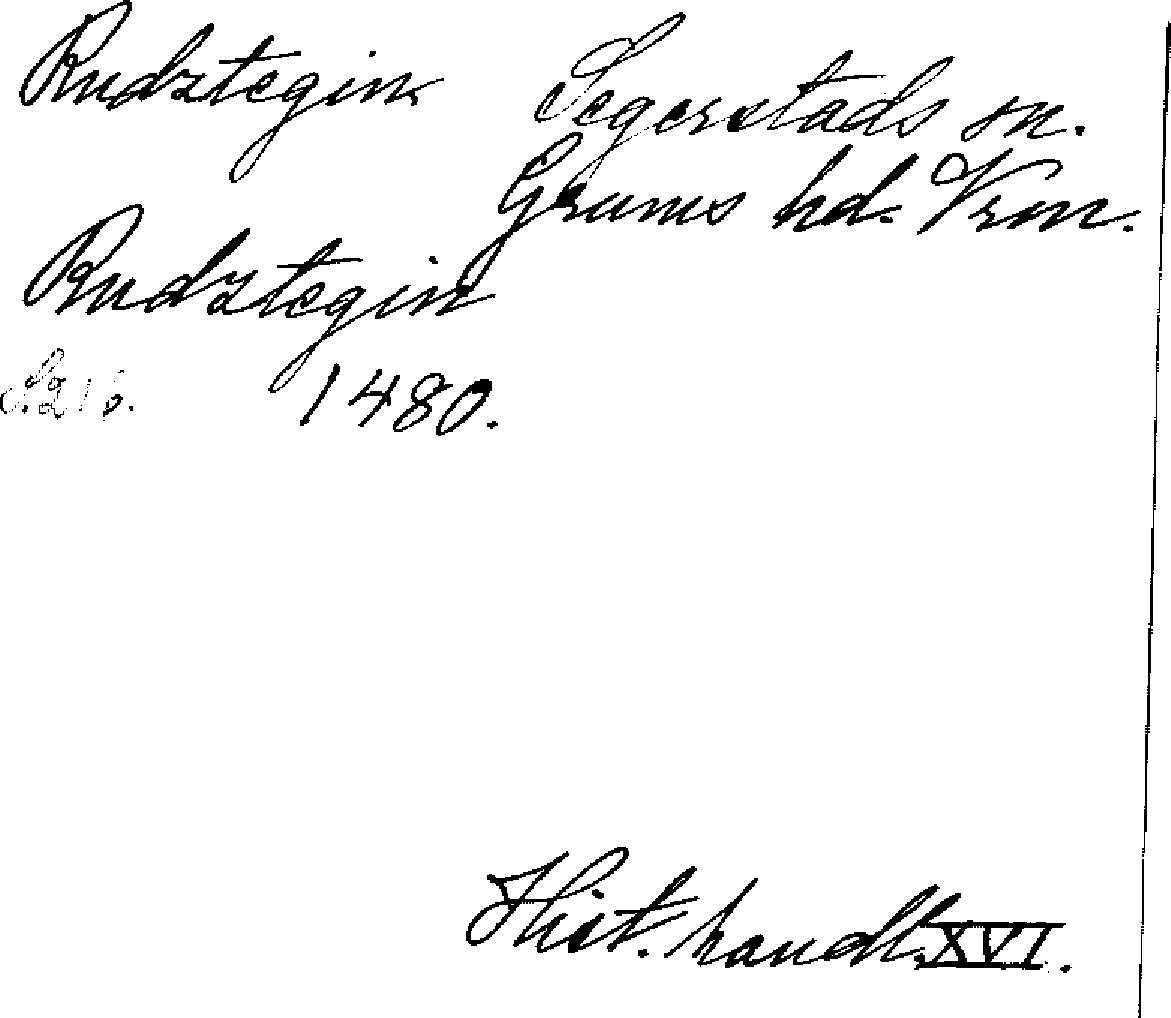 Rudztegin Segerstads sn.
Grums hd. Vrm.
Rudztegin
S. 216. 1480.
Hist. handl. XVI.